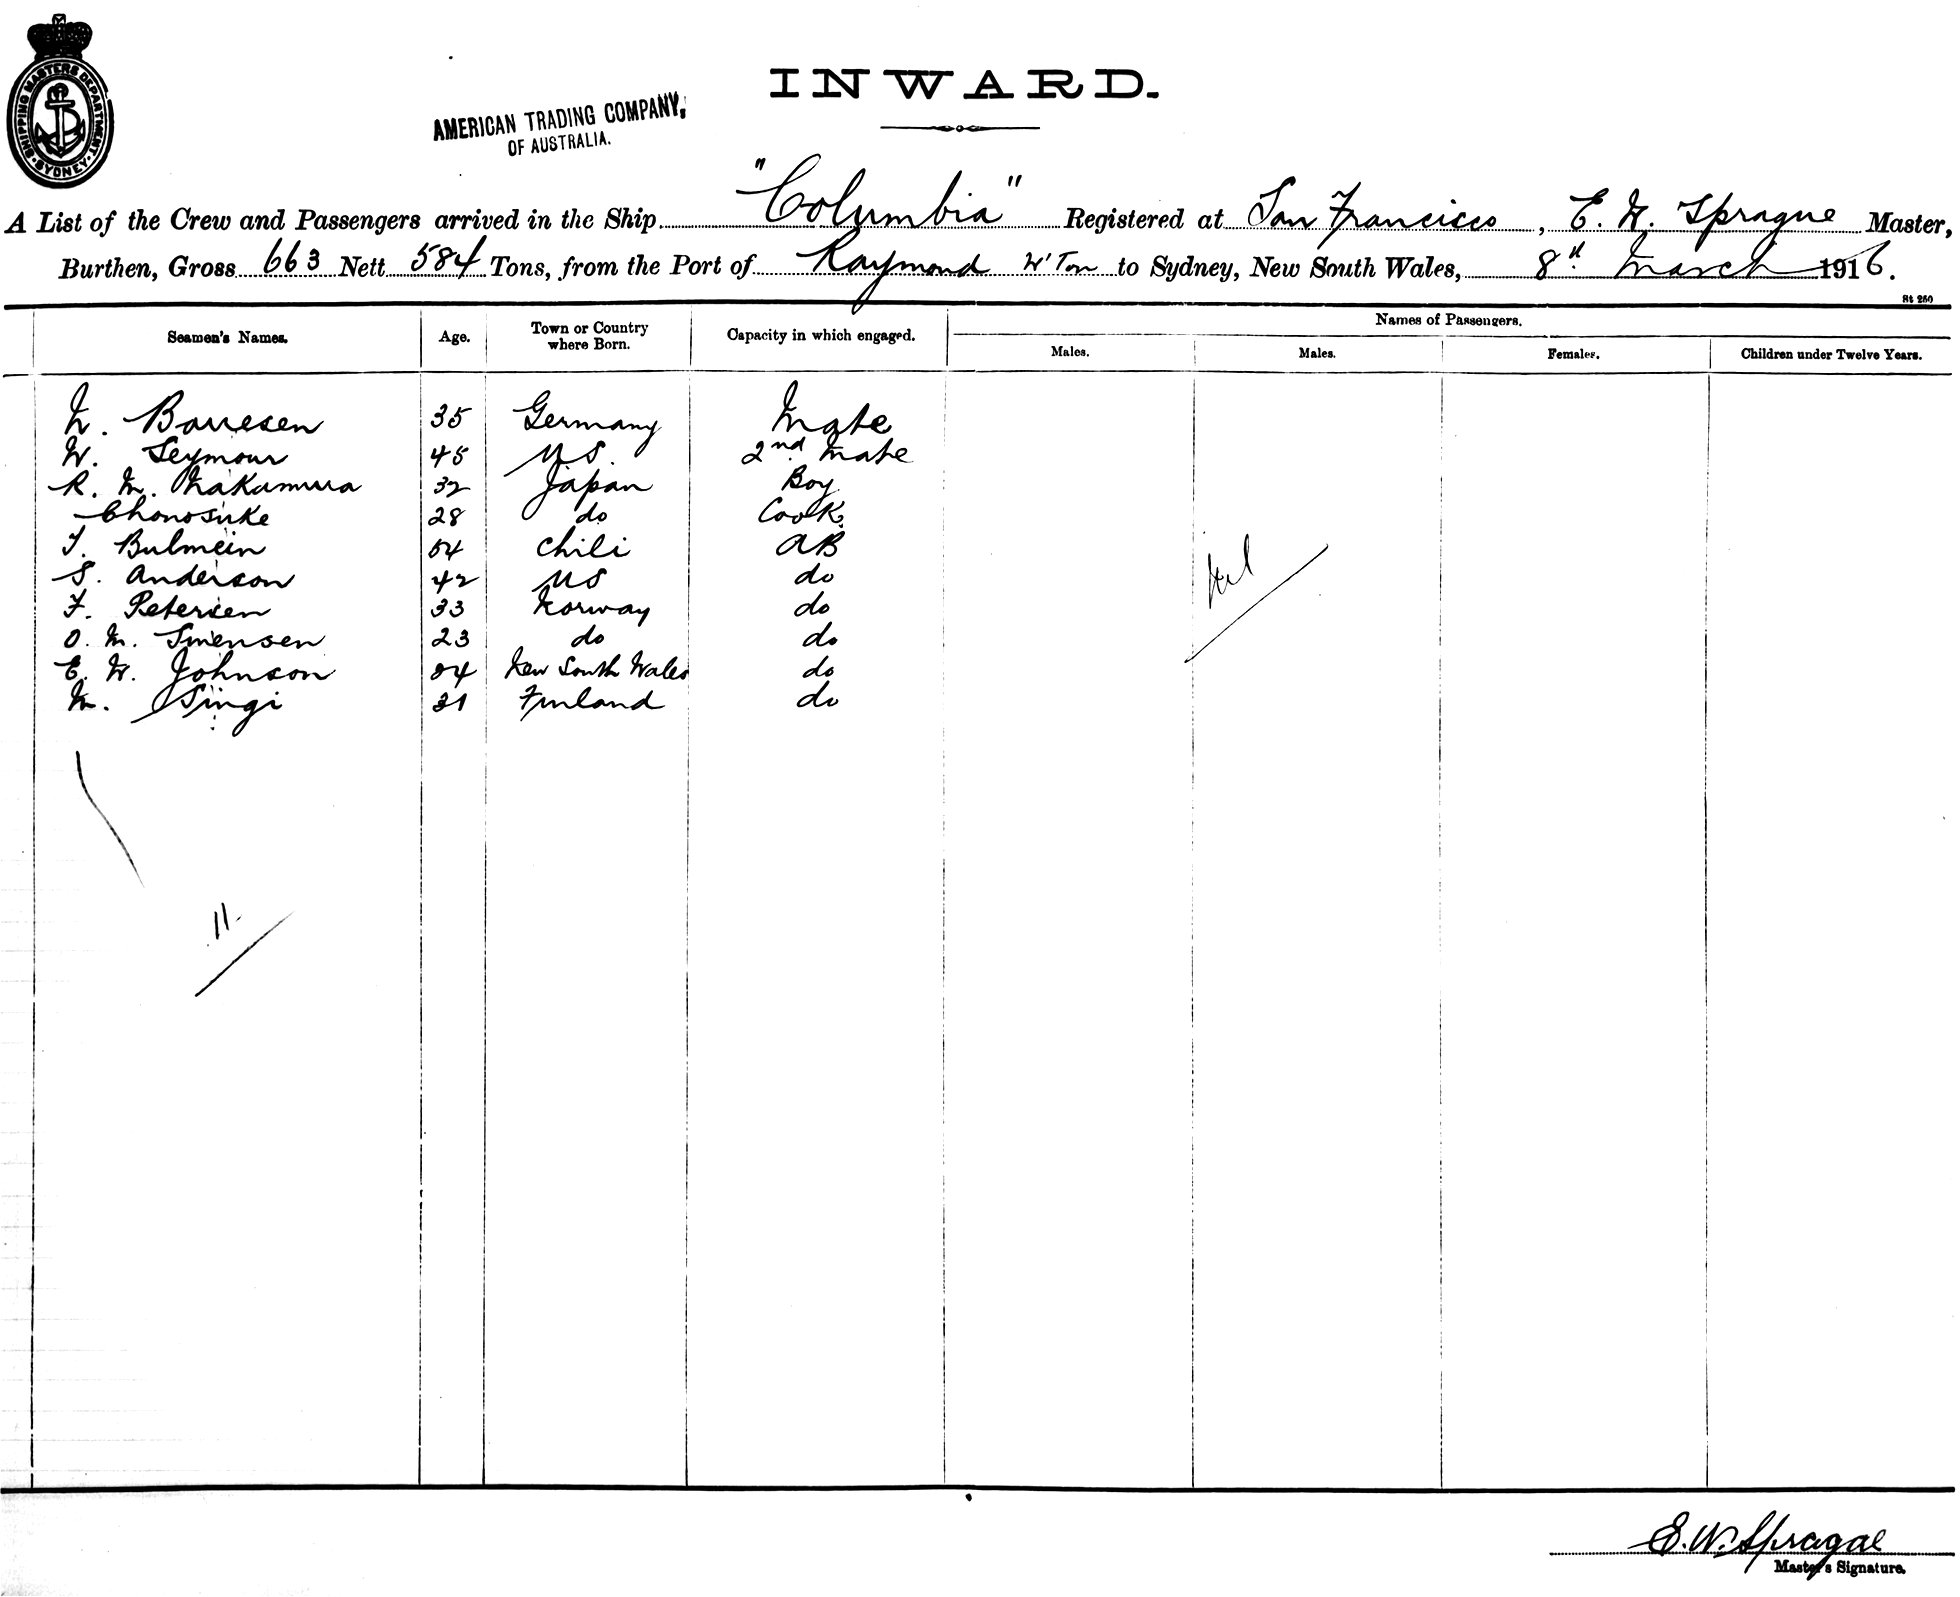 SHIPPING MASTERS DEPARTMENT · SYDNEY ·
INWARD.
AMERICAN TRADING COMPANY,
OF AUSTRALIA.
A List of the Crew and Passengers arrived in the Ship "Columbia" Registered at San Francisco, E. W. Sprague Master,
Burthen, Gross 663 Nett 584 Tons, from the Port of Raymond W'Ton to Sydney, New South Wales, 8th March 1916.
St 250
Seamen's Names. Age. Town or Country where Born. Capacity in which engaged. Names of Passengers.
Males. Males. Females. Children under Twelve Years.
N. Borresen 35 Germany Mate
W. Seymour 45 US. 2nd Mate
R. M. Nakamura 32 Japan Boy
Chonosuke 28 do Cook
T. Bulmein 54 Chili AB
S. Anderson 42 US do
F. Petersen 33 Norway do
O. M. Swensen 23 do do
E. W. Johnson 54 New South Wales do
M. Singi 31 Finland do
Nil
11.
E. W. Sprague
Master's Signature.